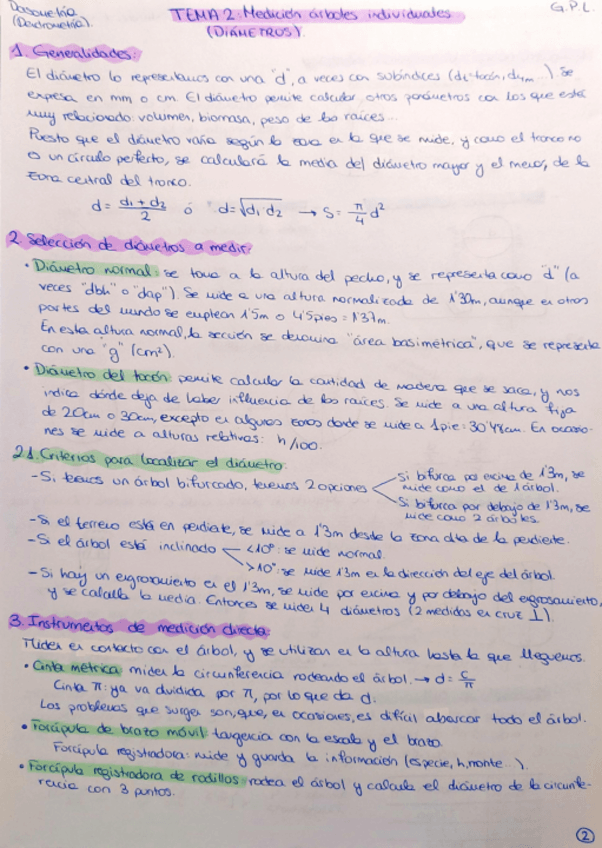 Dasometría
(Dextrometría).
TEMA 2: Medición árboles individuales
(DIÁMETROS).
G.P.L.
1. Generalidades:
El diámetro lo representamos con una "d", a veces con subíndices (d: tocón, d1,m...). Se
expresa en mm o cm. El diámetro permite calcular otros parámetros con los que está
muy relacionado: volumen, biomasa, peso de las raíces...
Puesto que el diámetro varía según la zona en la que se mide, y como el tronco no
o un círculo perfecto, se calculará la media del diámetro mayor y el menor, de la
zona central del tronco.
d = d1 + d2 / 2 ó d = √d1·d2 → S = π/4 d²
2. Selección de diámetros a medir:
• Diámetro normal: se toma a la altura del pecho, y se representa como "d" (a
veces "dbh" o "dap"). Se mide a una altura normalizada de 1'30m, aunque en otros
partes del mundo se emplean 1'5m o 4'5pies = 1'37m.
En esta altura normal, la sección se denomina "área basimétrica", que se representa
con una "g" (cm²).
• Diámetro del tocón: permite calcular la cantidad de madera que se saca, y nos
indica dónde deja de haber influencia de las raíces. Se mide a una altura fija
de 20cm o 30cm, excepto en algunas zonas donde se mide a 1 pie: 30'48cm. En ocasio-
nes se mide a alturas relativas: h/100.
2.1. Criterios para localizar el diámetro:
- Si tenemos un árbol bifurcado, tenemos 2 opciones
Si bifurca por encima de 1'3m, se
mide como el de 1 árbol.
Si bifurca por debajo de 1'3m, se
mide como 2 árboles.
- Si el terreno está en pendiente, se mide a 1'3m desde la zona alta de la pendiente.
- Si el árbol está inclinado <10°: se mide normal.
>10°: se mide 1'3m en la dirección del eje del árbol.
- Si hay un engrosamiento en el 1'3m, se mide por encima y por debajo del engrosamiento,
y se calcula la media. Entonces se miden 4 diámetros (2 medidas en cruz ⊥).
3. Instrumentos de medición directa:
Miden en contacto con el árbol, y se utilizan en la altura hasta la que lleguemos.
• Cinta métrica: miden la circunferencia rodeando el árbol. → d = c/π
Cinta π: ya va dividida por π, por lo que da d.
Los problemas que surgen son, que, en ocasiones, es difícil abarcar todo el árbol.
• Forcípula de brazo móvil: tangencia con la escala y el brazo.
Forcípula registradora: mide y guarda la información (especie, h, monte...).
• Forcípula registradora de rodillos: rodea el árbol y calcula el diámetro de la circunfe-
rencia con 3 puntos.
2